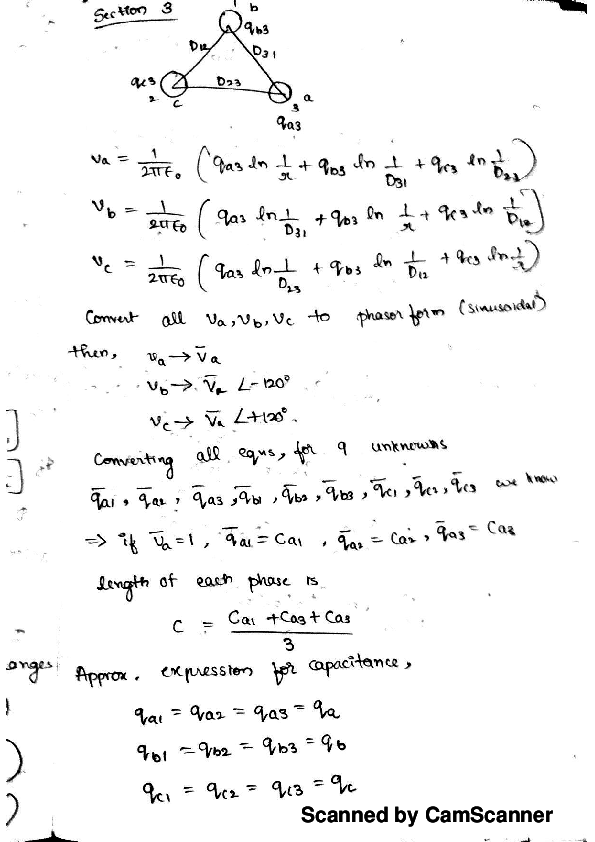 Section 3
1 b
qb3
D12 D31
qc3 D23
2 c 3 a
qa3
va = 1/2πε0 ( qa3 ln 1/r + qb3 ln 1/D31 + qc3 ln 1/D23 )
vb = 1/2πε0 ( qa3 ln 1/D31 + qb3 ln 1/r + qc3 ln 1/D12 )
vc = 1/2πε0 ( qa3 ln 1/D23 + qb3 ln 1/D12 + qc3 ln 1/r )
Convert all va, vb, vc to phasor form (sinusoidal)
then, va → V̄a
vb → V̄a ∠-120°
vc → V̄a ∠+120°.
Converting all equs, for 9 unknowns
q̄a1, q̄a2, q̄a3, q̄b1, q̄b2, q̄b3, q̄c1, q̄c2, q̄c3 we know
⇒ if V̄a = 1, q̄a1 = Ca1, q̄a2 = Ca2, q̄a3 = Ca3
length of each phase is
C = Ca1 + Ca3 + Ca3 / 3
anges Approx. expression for capacitance,
qa1 = qa2 = qa3 = qa
qb1 = qb2 = qb3 = qb
qc1 = qc2 = qc3 = qc
Scanned by CamScanner